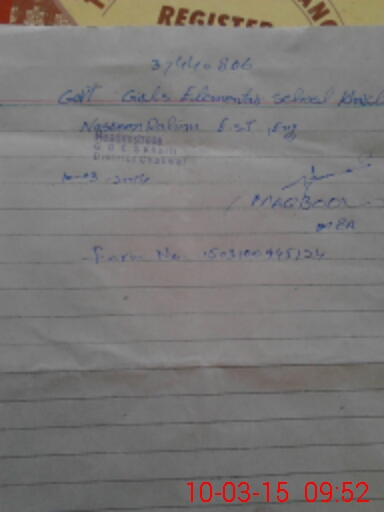 REGISTER
37440806
Govt Girls Elementary School
Nasreen Rahim E.S.T, Eng
Headmistress
District Chakwal
MAQBOOL
Form No. 1503100945124
10-03-15 09:52